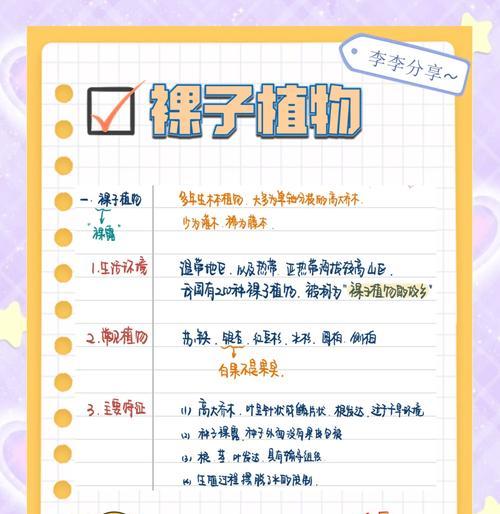 李李分享~
裸子植物
一. 裸子植物 多年生木本植物, 大多为单轴分枝的高大乔木
"裸露" 少为灌木 稀为藤木
1. 生活环境 温带地区. 以及热带 亚热带海拔较高山区.
我国有250种裸子植物. 被称为"裸子植物的故乡"
2. 常见植物 苏铁. 银杏. 红豆杉. 水杉. 圆柏. 侧柏
白果不是果实.
3. 主要特征 (1) 高大乔木. 叶呈针状或鳞片状. 根发达. 适于干旱环境
(2) 种子裸露, 种子外面没有果皮包被
(3) 根. 茎. 叶发达. 具有输导组织
(4) 生殖过程摆脱了水的限制.